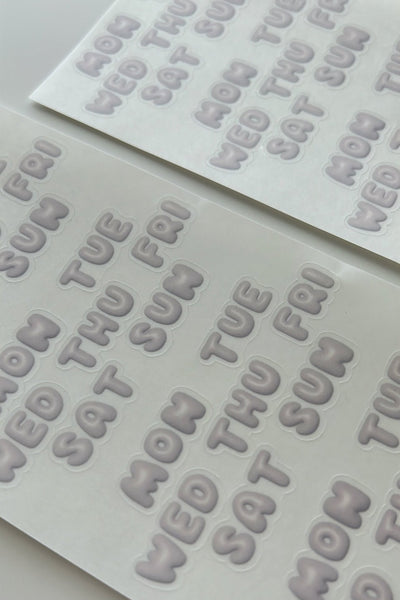 MON
WED THU
SAT SUN
MON TUE
WED THU FRI
SAT SUN
MON
WED
FRI
SUN
MON TUE
WED THU FRI
SAT SUN
MON TUE
WED THU FRI
SAT SUN
MON